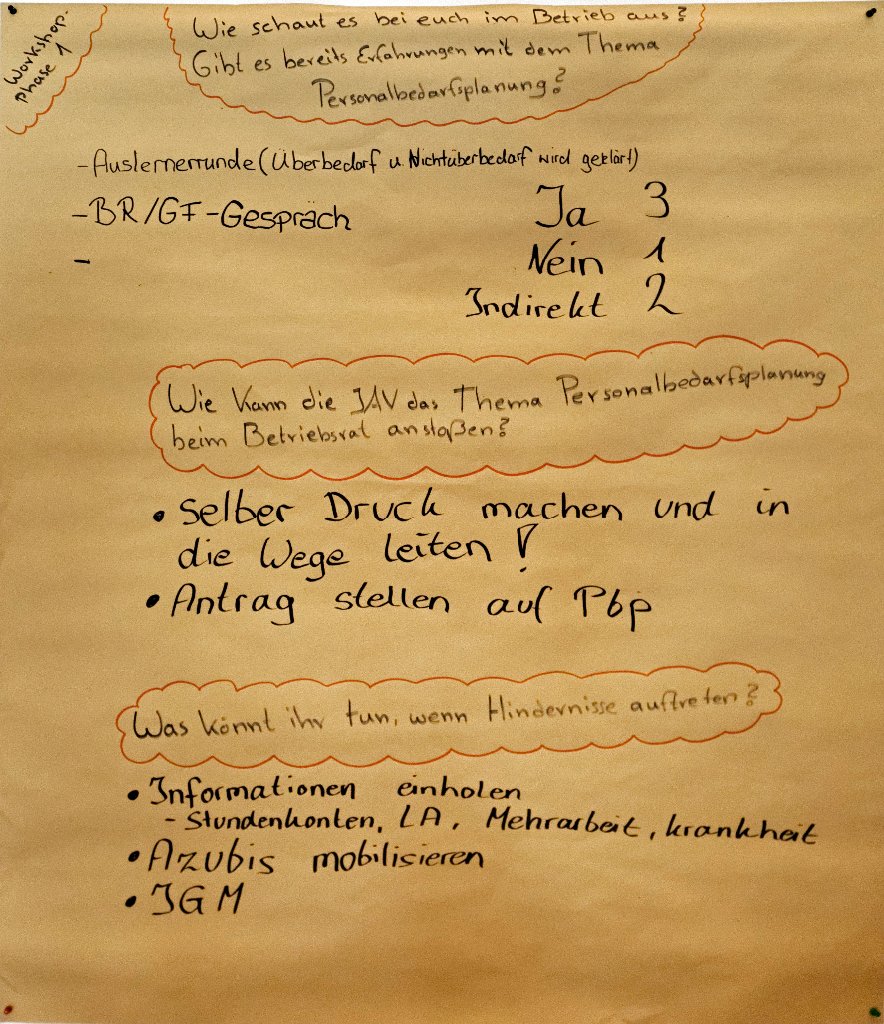 Workshop-
Phase 1
Wie schaut es bei euch im Betrieb aus?
Gibt es bereits Erfahrungen mit dem Thema
Personalbedarfsplanung?
- Auslernerrunde (Überbedarf u. Nichtüberbedarf wird geklärt)
- BR/GF-Gespräch
-
Ja 3
Nein 1
Indirekt 2
Wie kann die JAV das Thema Personalbedarfsplanung
beim Betriebsrat anstoßen?
• Selber Druck machen und in
die Wege leiten!
• Antrag stellen auf Pbp
Was könnt ihr tun, wenn Hindernisse auftreten?
• Informationen einholen
- Stundenkonten, LA, Mehrarbeit, krankheit
• Azubis mobilisieren
• IGM